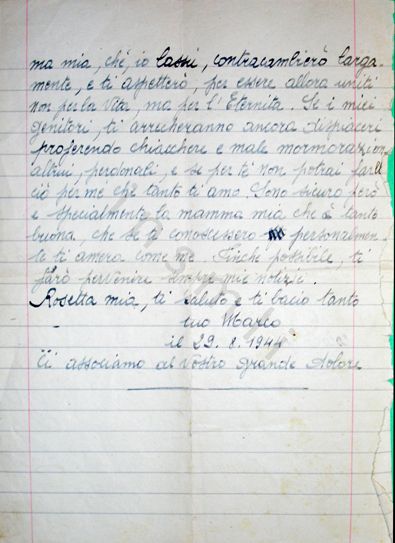 ma mia, ché, io lassù, contracambierò larga-
mente, e ti aspetterò, per essere allora uniti
non per la Vita, ma per l'Eternita. Se i miei
genitori, ti arrecheranno ancora dispiaceri
proferendo chiacchere e male mormorazioni
altrui, perdonali, e se per te non potrai farlo
ciò per me che tanto ti amo. Sono sicuro però
e specialmente la mamma mia che è tanto
buona, che se ti conoscessero personalmen-
te ti amera come me. Finche possibile, ti
farò pervenire sempre mie notizie.
Rosetta mia, ti saluto e ti bacio tanto
tuo Marco
il 29. 8. 1944
Ci associamo al vostro grande dolore